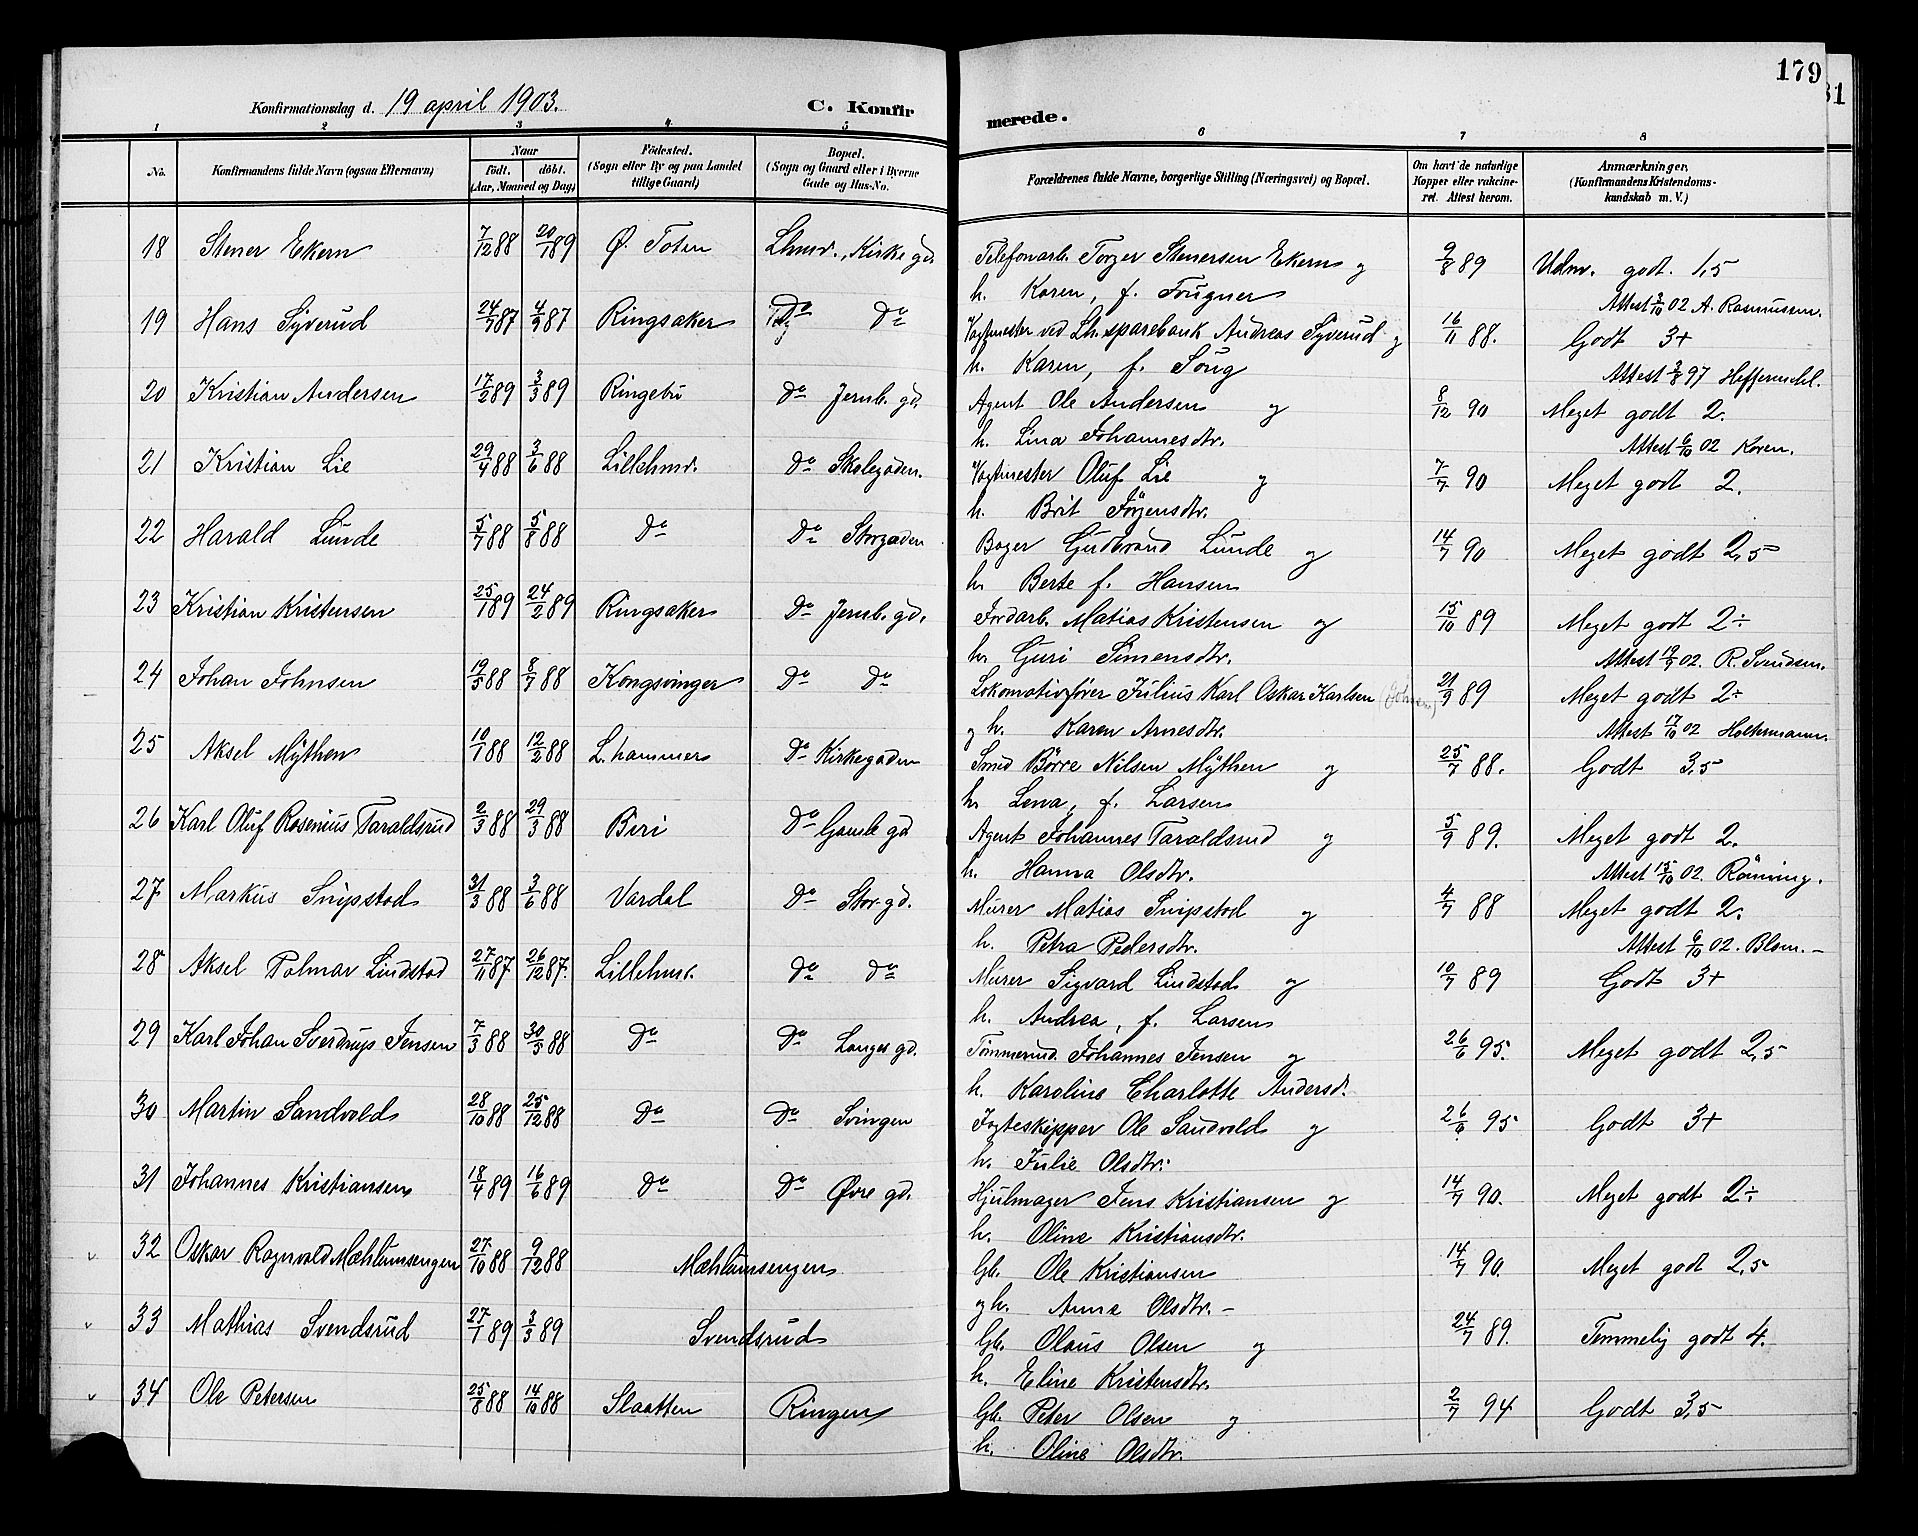 179
31
Konfirmationsdag d. 19 april 1903.
C. Konfirmerede.
1 2 3 4 5 6 7 8
No.
Konfirmandens fulde Navn (ogsaa Efternavn)
Naar
født. døbt.
(Aar, Maaned og Dag)
Fødested.
(Sogn eller By og paa Landet
tillige Gaard)
Bopæl.
(Sogn og Gaard eller i Byerne
Gade og Hus-No.
Forældrenes fulde Navne, borgerlige Stilling (Næringsvei) og Bopæl.
Om havt de naturlige
Kopper eller vakcine-
ret. Attest herom.
Anmærkninger,
(Konfirmandens Kristendoms-
kundskab m. V.)
18 Stener Ekern 7/12 88 20/1 89 Ø. Toten Lhmr., Kirkegd. Telefonarb. Torger Stenersen Ekern og 9/8 89 Udm. godt. 1,5
h. Karen, f. Frugner Attest 2/10 02 A. Rasmussen.
19 Hans Syverud 24/7 87 4/9 87 Ringsaker Do Do Vagtmester ved Lh. sparebank Andreas Syverud og 16/11 88. Godt 3+
h. Karen, f. Soug Attest 3/8 97
20 Kristian Andersen 17/2 89 3/3 89 Ringebu Do Jernb. gd. Agent Ole Andersen og 8/12 90 Meget godt 2.
h. Lina Johannesdtr. Attest 6/10 02 Koren.
21 Kristian Lie 29/4 88 3/6 88 Lillehmr. Do Skolegaden. Vagtmester Oluf Lie og 7/7 90 Meget godt 2.
h. Brit Jörgensdtr.
22 Harald Lunde 5/7 88 5/8 88 Do Do Storgaden Bager Gudbrand Lunde og 14/7 90 Meget godt 2,5
h. Berte f. Hansen
23 Kristian Kristensen 25/1 89 24/2 89 Ringsaker Do Jernb. gd. Jordarb. Matias Kristensen og 15/10 89 Meget godt 2÷
h. Guri Simensdtr. Attest 19/9 02. R. Svendsen.
24 Johan Johnsen 19/5 88 8/7 88 Kongsvinger Do Do Lokomotivfører Julius Karl Oskar Karlsen (Johnsen) 21/9 89 Meget godt 2÷
og h. Karen Arnesdtr. Attest 17/10 02 Holtermann.
25 Aksel Mÿthen 10/1 88 12/2 88 L. hammer Do Kirkegaden Smed Børre Nilsen Mÿthen og 25/7 88. Godt 3,5
h. Lena, f. Larsen
26 Karl Oluf Rosenius Taraldsrud 2/3 88 29/3 88 Biri Do Gamle gd Agent Johannes Taraldsrud og 5/9 89. Meget godt 2.
h. Hanna Olsdtr. Attest 15/10 02. Rönning.
27 Markus Snipstad 31/3 88 3/6 88 Vardal Do Stor. gd. Murer Matias Snipstad og 4/7 88 Meget godt 2.
h. Petra Pedersdtr. Attest 6/10 02. Blom. –
28 Aksel Palmar Lindstad 27/11 87 26/12 87. Lillehmr. Do Do Murer Sigvard Lindstad og 10/7 89 Godt 3+
h. Andrea, f. Larsen
29 Karl Johan Sverdrup Jensen 7/3 88 30/3 88 Do Do Langes gd. Tømmermd. Johannes Jensen og 26/6 95. Meget godt 2,5
h. Karoline Charlotte Andersd.
30 Martin Sandvold 28/10 88 25/12 88 Do Do Svingen Jagteskipper Ole Sandvold og 26/6 95 Godt 3+
h. Julie Olsdtr.
31 Johannes Kristiansen 18/4 89 16/6 89 Do Do Øvre gd. Hjulmager Jens Kristiansen og 14/7 90. Meget godt 2÷
h. Oline Kristiansdtr.
v 32 Oskar Ragnvald Mæhlumsengen 27/10 88 9/12 88 Mæhlumsengen Gb. Ole Kristiansen 14/7 90. Meget godt 2,5
og h. Anna Olsdtr. –
v 33 Mathias Svendsrud 27/1 89 3/3 89 Svendsrud Gb. Olaus Olsen og 24/7 89. Temmelig godt 4.
h. Eline Kristensdtr.
v 34 Ole Petersen 25/8 88 14/10 88 Slaatten Ringen Gb. Peter Olsen og 2/7 94 Godt 3,5
h. Oline Olsdtr.